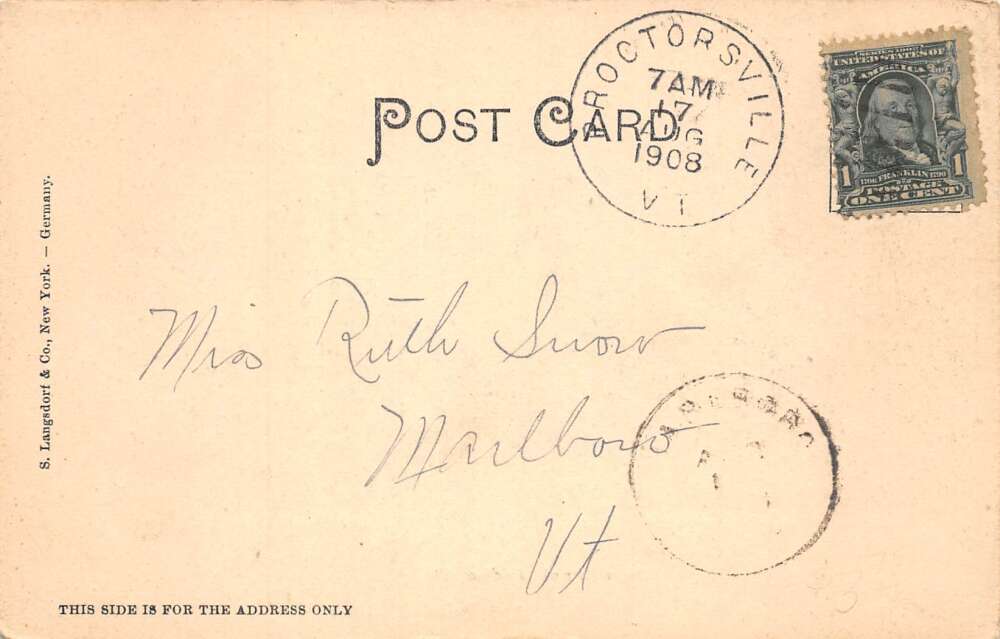 POST CARD
PROCTORSVILLE
7 AM
17
AUG
1908
VT
SERIES 1902
UNITED STATES OF
AMERICA
1706 FRANKLIN 1790
1 1
POSTAGE
ONE CENT
S. Langsdorf & Co., New York. — Germany.
Miss Ruth Snow
Marlboro
Vt
THIS SIDE IS FOR THE ADDRESS ONLY